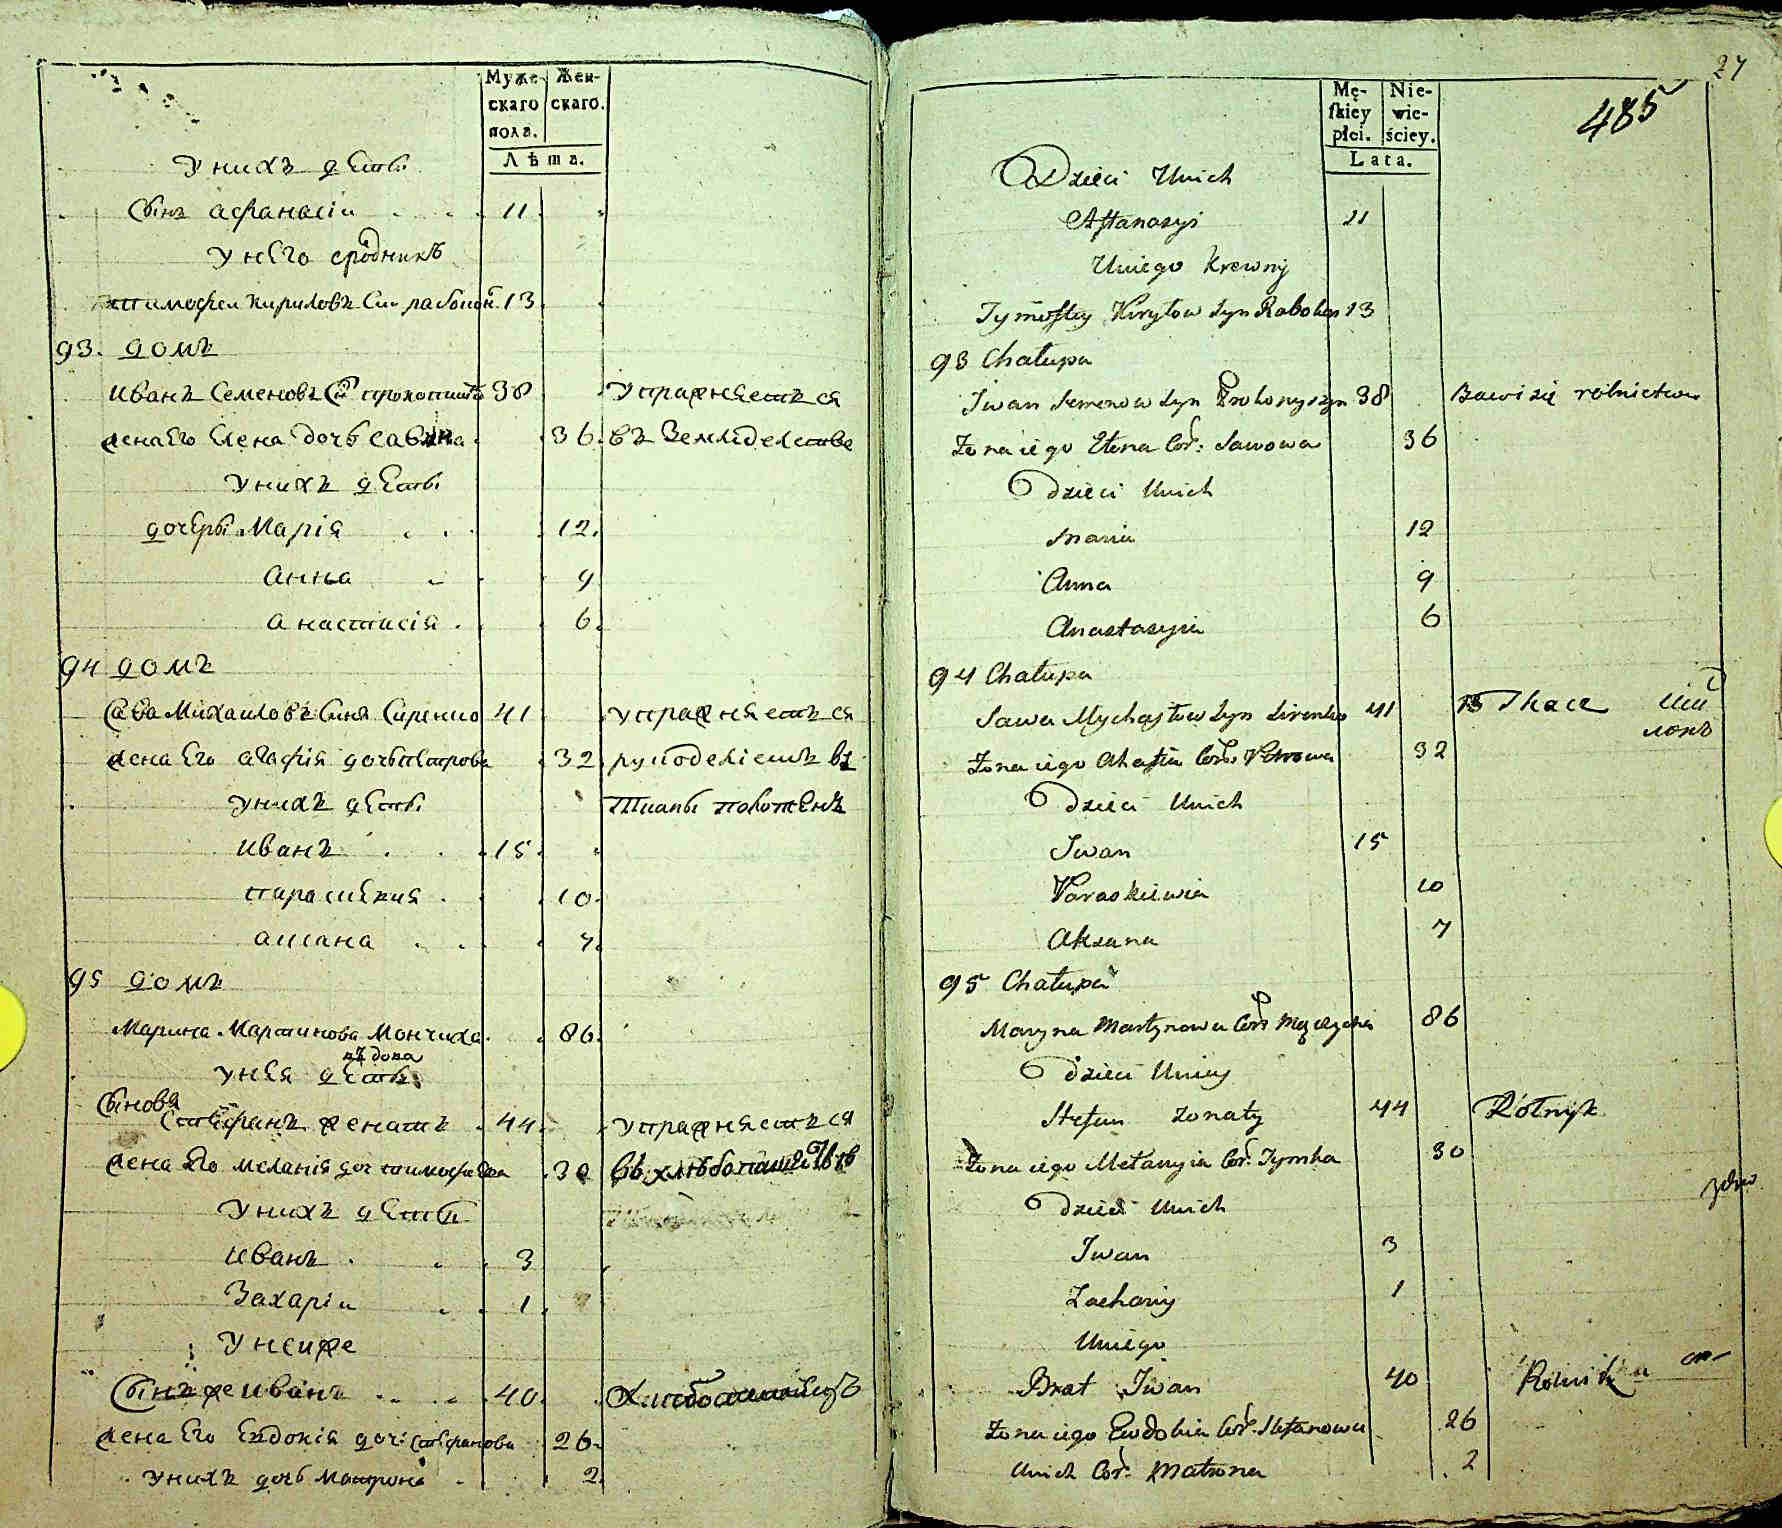 Муже-
скаго
пола.
Жен-
скаго.
Лѣта.
У нихъ дети
Сынъ Афанасіи 11
У него сродникъ
Тимофеи Кириловъ Сын 13
93. домъ
Иванъ Семеновъ Сын 38 Упражняетъся
жена Его Елена дочь Савина 36 въ Земледелстве
У нихъ дети
дочери Марія 12
Анна 9
Анастасія 6
94 домъ
Сава Михаиловъ Сынъ Сиренко 41 упражняетъся
жена Его Агафія дочь Петрова 32 рукоделіемъ въ
у нихъ дети
Иванъ 15
параскевия 10
Аксана 7
95 домъ
Марина Мартинова Мончиха 86
вдова
У нея дети
Сыновя
Стефанъ женатъ 44 упражняетъся
жена Его меланія доч тимофеева 30
У нихъ дети
Иванъ 3
Захаріи 1
У неи же
Сынъ же Иванъ 40
жена Его Евдокія доч: Стефанова 26
У нихъ дочь Матрона 2
27
485
Mę-
ſkiey
płci.
Nie-
wie-
ściey.
Lata.
Dzieci Unich
Aftanazyi 11
Uniego Krewny
Tymofiey Kiryłow Syn 13
93 Chałupa
Iwan Semenow Syn Prokopyszyn 38 Bawi się rolnictwem
Zona iego Elena Cór: Sawowa 36
Dzieci Unich
Maria 12
Anna 9
Anastazyia 6
94 Chałupa
Sawa Mychayłow Syn Sirenko 41 Tkacz
Zona iego Ahafia Cór: Petrowa 32
Dzieci Unich
Iwan 15
Paraskiewia 10
Aksana 7
95 Chałupa
Maryna Martynowa Cór 86
Dzieci Uniey
Stefan zonaty 44 Rolnyk
Zona iego Mełanyia Cór: Tymka 30
Dzieci Unich
Iwan 3
Zachariy 1
Uniego
Brat Iwan 40 Rolnik
Zona iego Ewdokia Cór: Stefanowa 26
Unich Cór: Matrona 2